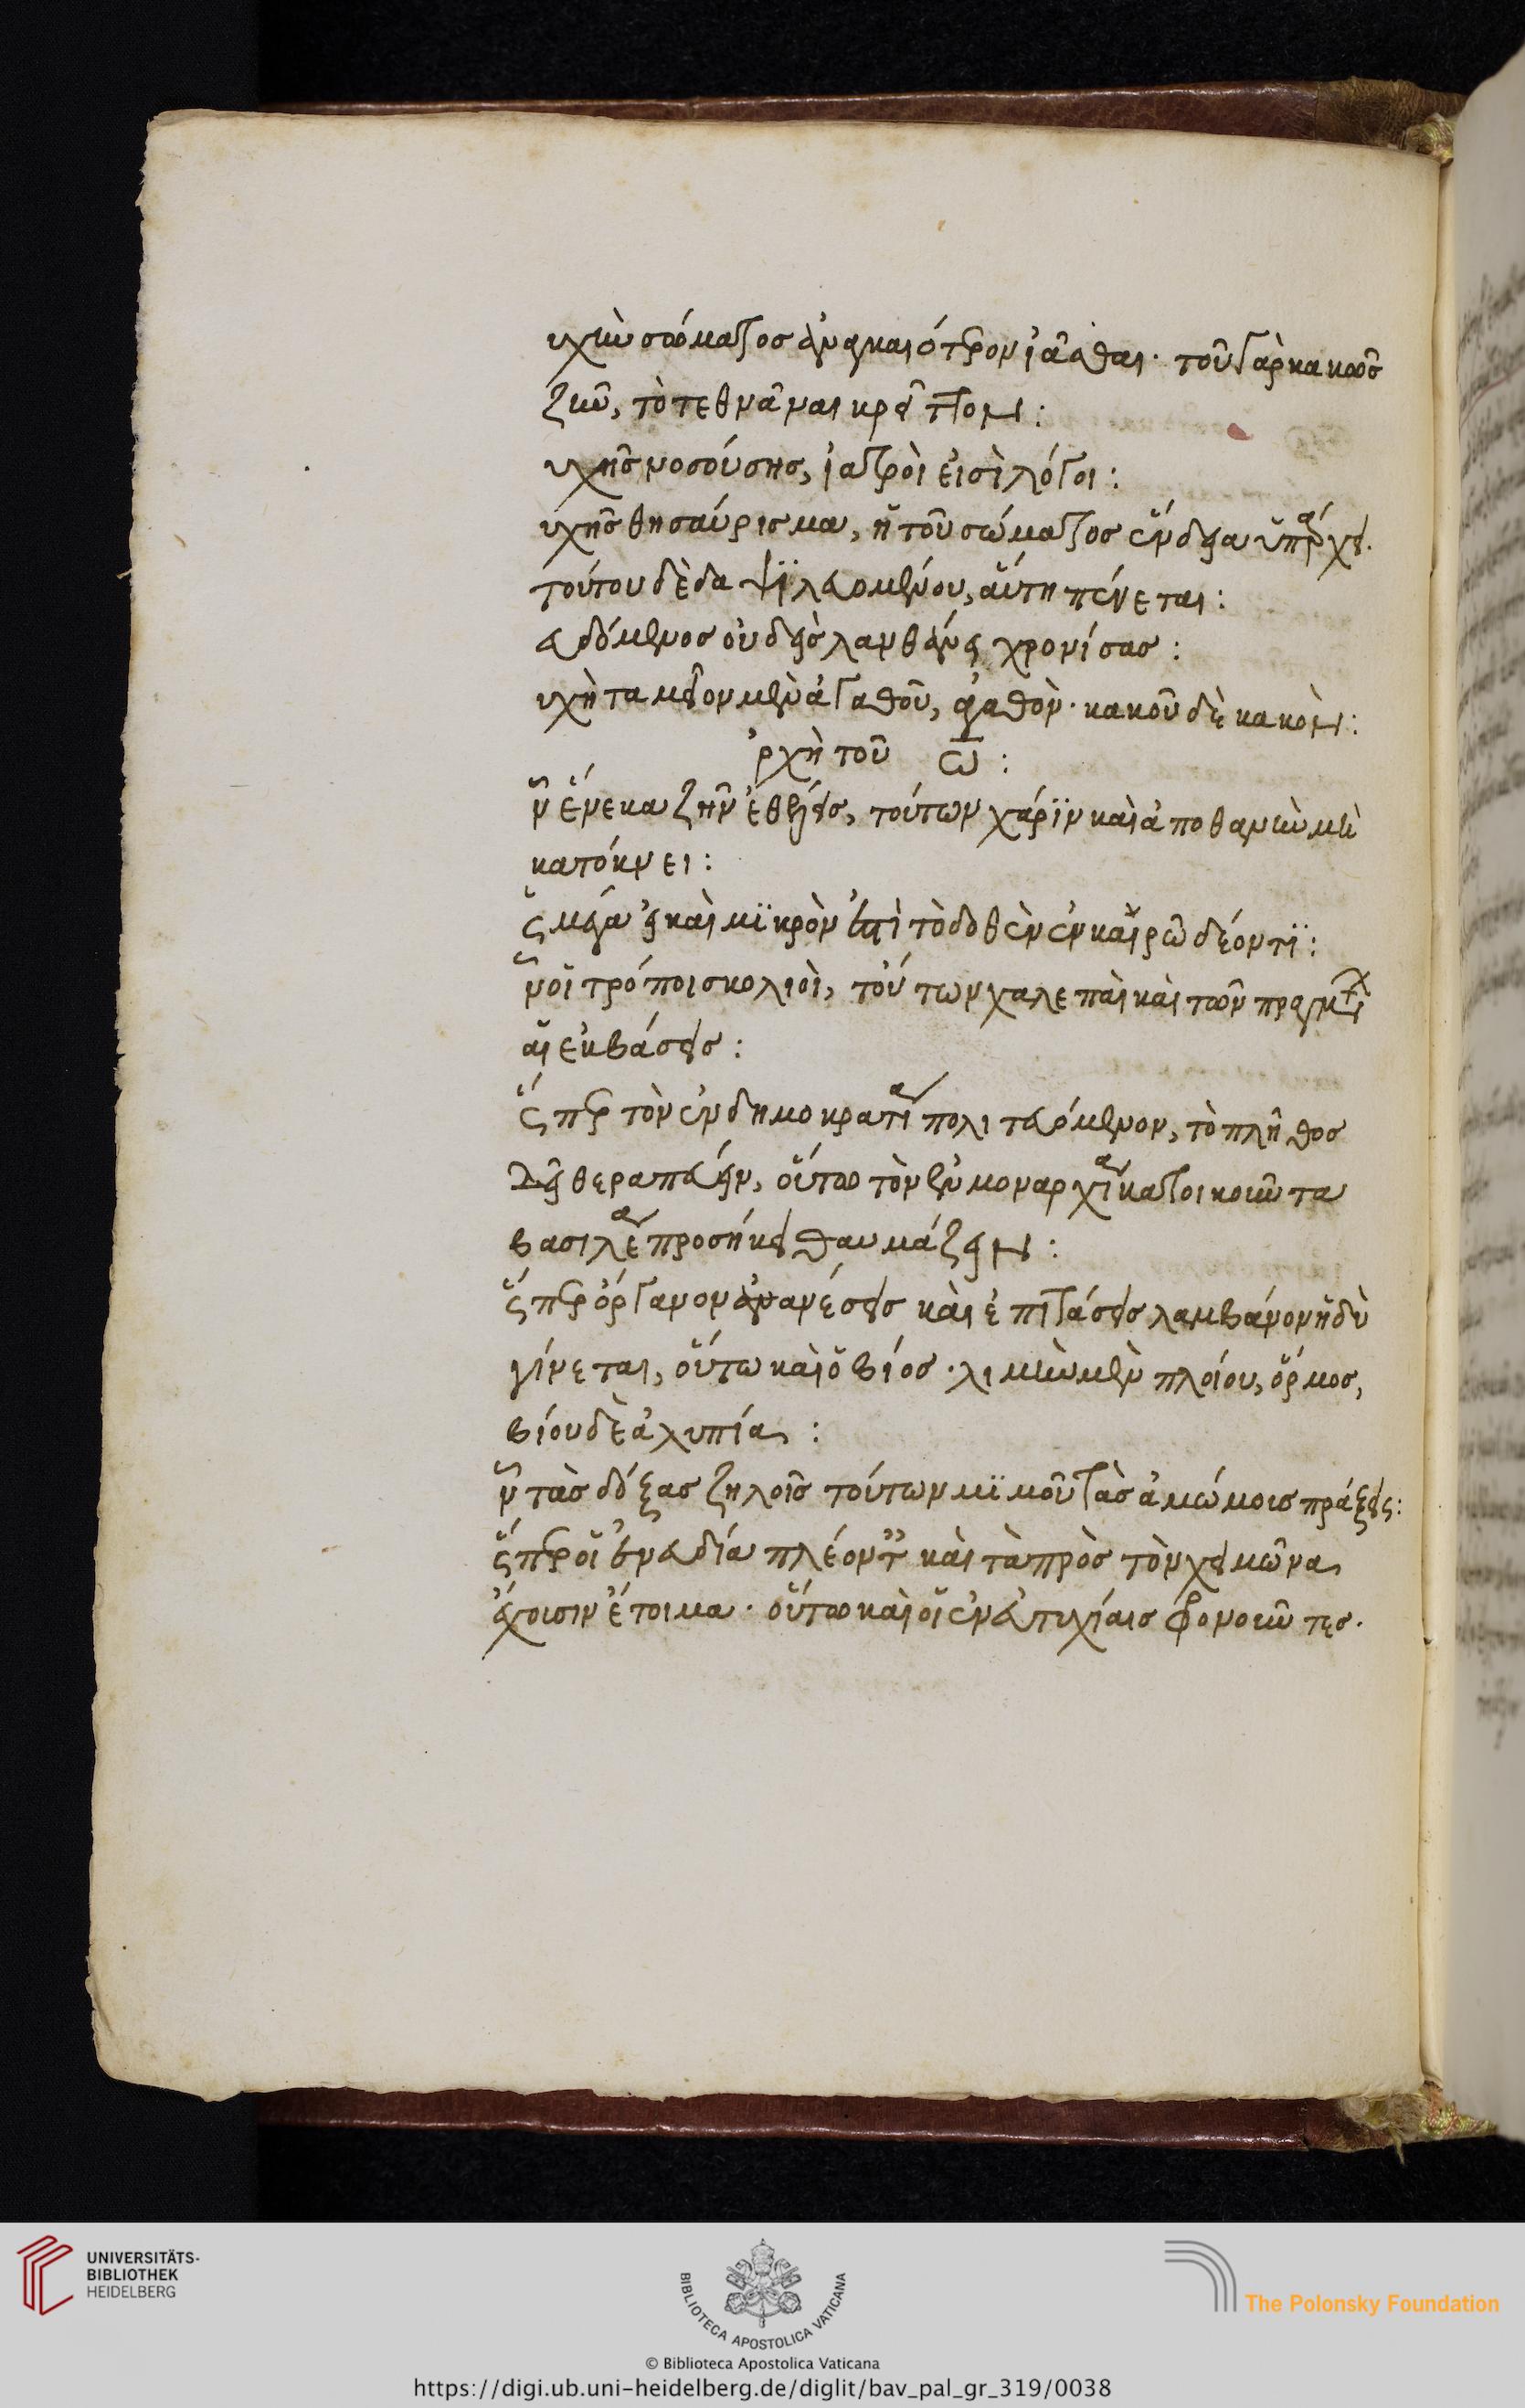 υχὴν σώματος ἀναγκαιότερον ἰᾶσθαι· τοῦ γὰρ κακῶς
ζῆν, τὸ τεθνᾶναι κρεῖττον:
υχῆς νοσούσης, ἰατροὶ εἰσὶ λόγοι:
υχῆς θησαύρισμα, ἡ τοῦ σώματος ἔνδεια ὑπάρχει.
τούτου δὲ δαψϊλευομένου, αὕτη πένεται:
ευδόμενος οὐδεὶς λανθάνει χρονίσας:
υχὴ ταμεῖον μὲν ἀγαθοῦ, ἀγαθὸν· κακοῦ δὲ κακὸν:
ρχὴ τοῦ ω:
ν ἕνεκα ζῆν ἐθέλεις, τούτων χάρϊν καὶ ἀποθανεῖν μὴ
κατόκνει:
ς μέγα καὶ μϊκρὸν ἐστὶ τὸ δοθὲν ἐν καιρῶ δέοντϊ:
ν οἱ τρόποι σκολιοὶ, τούτων χαλεπαὶ καὶ τῶν πραγμάτων
αἱ ἐκβάσεις:
ς περ τὸν ἐν δημοκρατία πολιτευόμενον, τὸ πλῆθος
δεῖ θεραπεύειν, οὕτω τὸν ἐν μοναρχία κατοικοῦντα
βασιλέα προσήκει θαυμάζειν:
ς περ ὄργανον ἀνανέσεις καὶ ἐπιτάσεις λαμβάνον ἡδὺ
γίνεται, οὕτω καὶ ὁ βίος· λιμὴν μὲν πλοίου, ὅρμος,
βίου δὲ ἀλυπία:
ν τὰς δόξας ζηλοῖς τούτων μϊμοῦ τὰς ἀμώμοις πράξεις:
ς περ οἱ ἐν εὐδία πλέοντες καὶ τὰ πρὸς τὸν χειμῶνα
ἔχουσιν ἕτοιμα· οὕτω καὶ οἱ ἐν εὐτυχίαις φρονοῦντες.
UNIVERSITÄTS-
BIBLIOTHEK
HEIDELBERG
BIBLIOTECA APOSTOLICA VATICANA
The Polonsky Foundation
© Biblioteca Apostolica Vaticana
https://digi.ub.uni-heidelberg.de/diglit/bav_pal_gr_319/0038